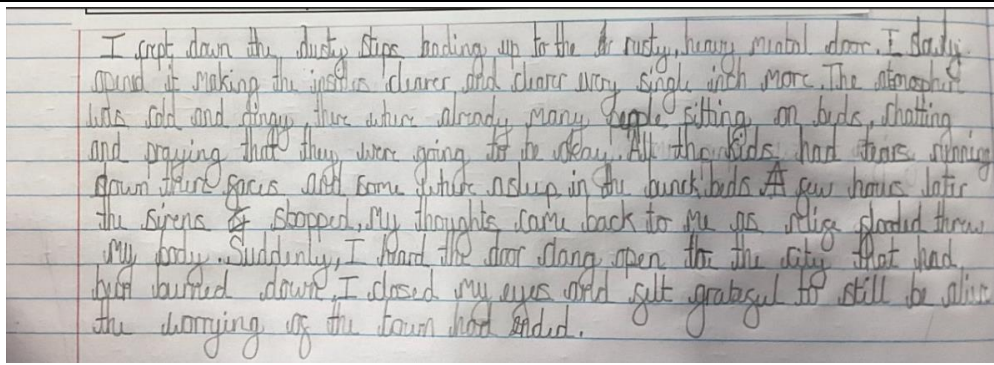 I crept down the dusty steps leading up to the rusty, heavy mental door. I slowly
opend it making the insides clearer and clearer every single inch more. The atmosphere
was cold and dingy, there where already many people sitting on beds, chatting
and praying that they were going to be okay. All the kids had tears running
down there faces and some where asleep in the bunck beds. A few hours later
the sirens stopped, My thoughts came back to me as relige flooded threw
my body. Suddenly, I heard the door clang open to the city that had
been burned down, I closed my eyes and felt grateful to still be alive
the worrying of the town had ended.